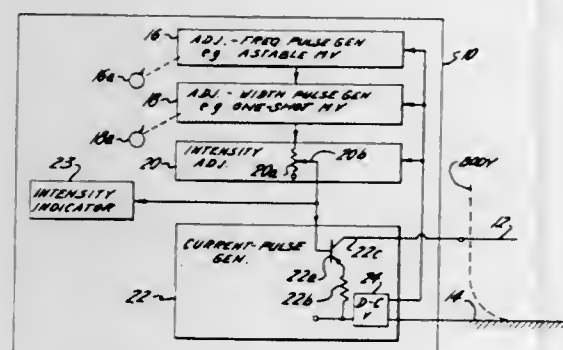 16
ADJ.-FREQ PULSE GEN
e.g. ASTABLE MV
10
16a
18
ADJ.-WIDTH PULSE GEN
e.g. ONE-SHOT MV
18a
20
INTENSITY
ADJ.
20a
20b
23
INTENSITY
INDICATOR
BODY
CURRENT-PULSE
GEN.
22c
12
22a
22
22b
24
D-C
V
14